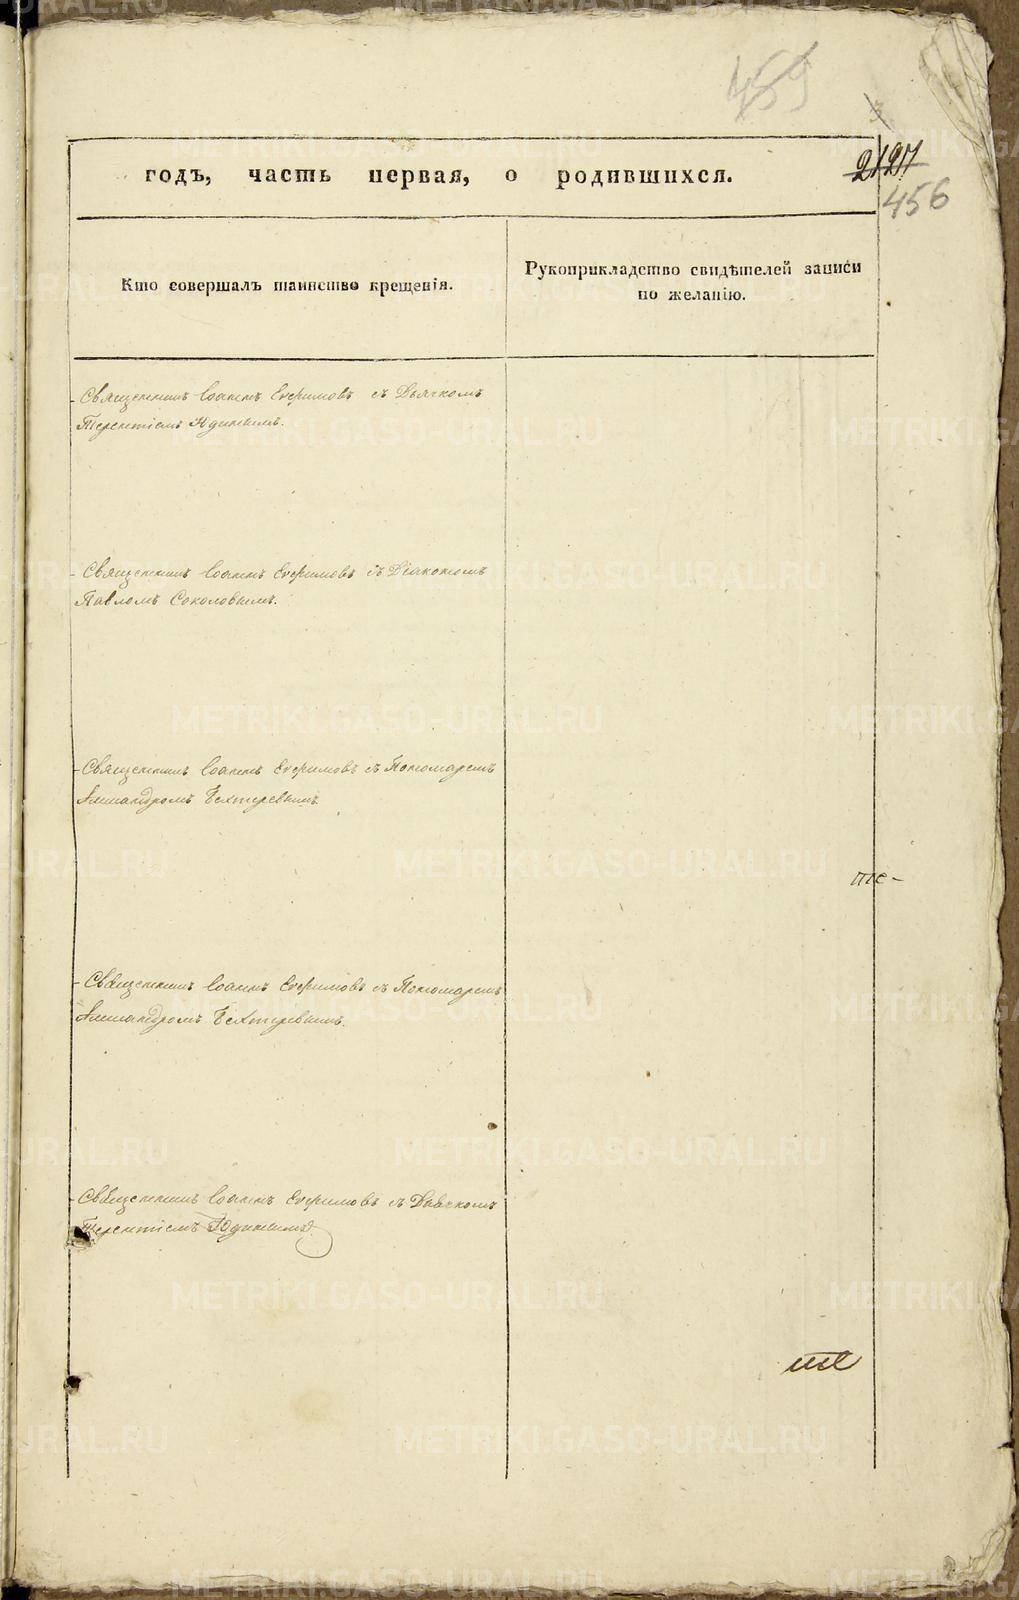 459
годъ, часть первая, о родившихся.
456
Кто совершалъ таинство крещенія.
Рукоприкладство свидѣтелей записи
по желанію.
Священникъ Іоаннъ Ефимовъ съ Дьячкомъ
Терентіемъ Юдинымъ.
Священникъ Іоаннъ Ефимовъ съ Діакономъ
Павломъ Соколовымъ.
Священникъ Іоаннъ Ефимовъ съ Пономаремъ
Бехтеревымъ
Священникъ Іоаннъ Ефимовъ съ Пономаремъ
Бехтеревымъ.
Священникъ Іоаннъ Ефимовъ съ Дьячкомъ
Терентіемъ Юдинымъ.
METRIKI.GASO-URAL.RU